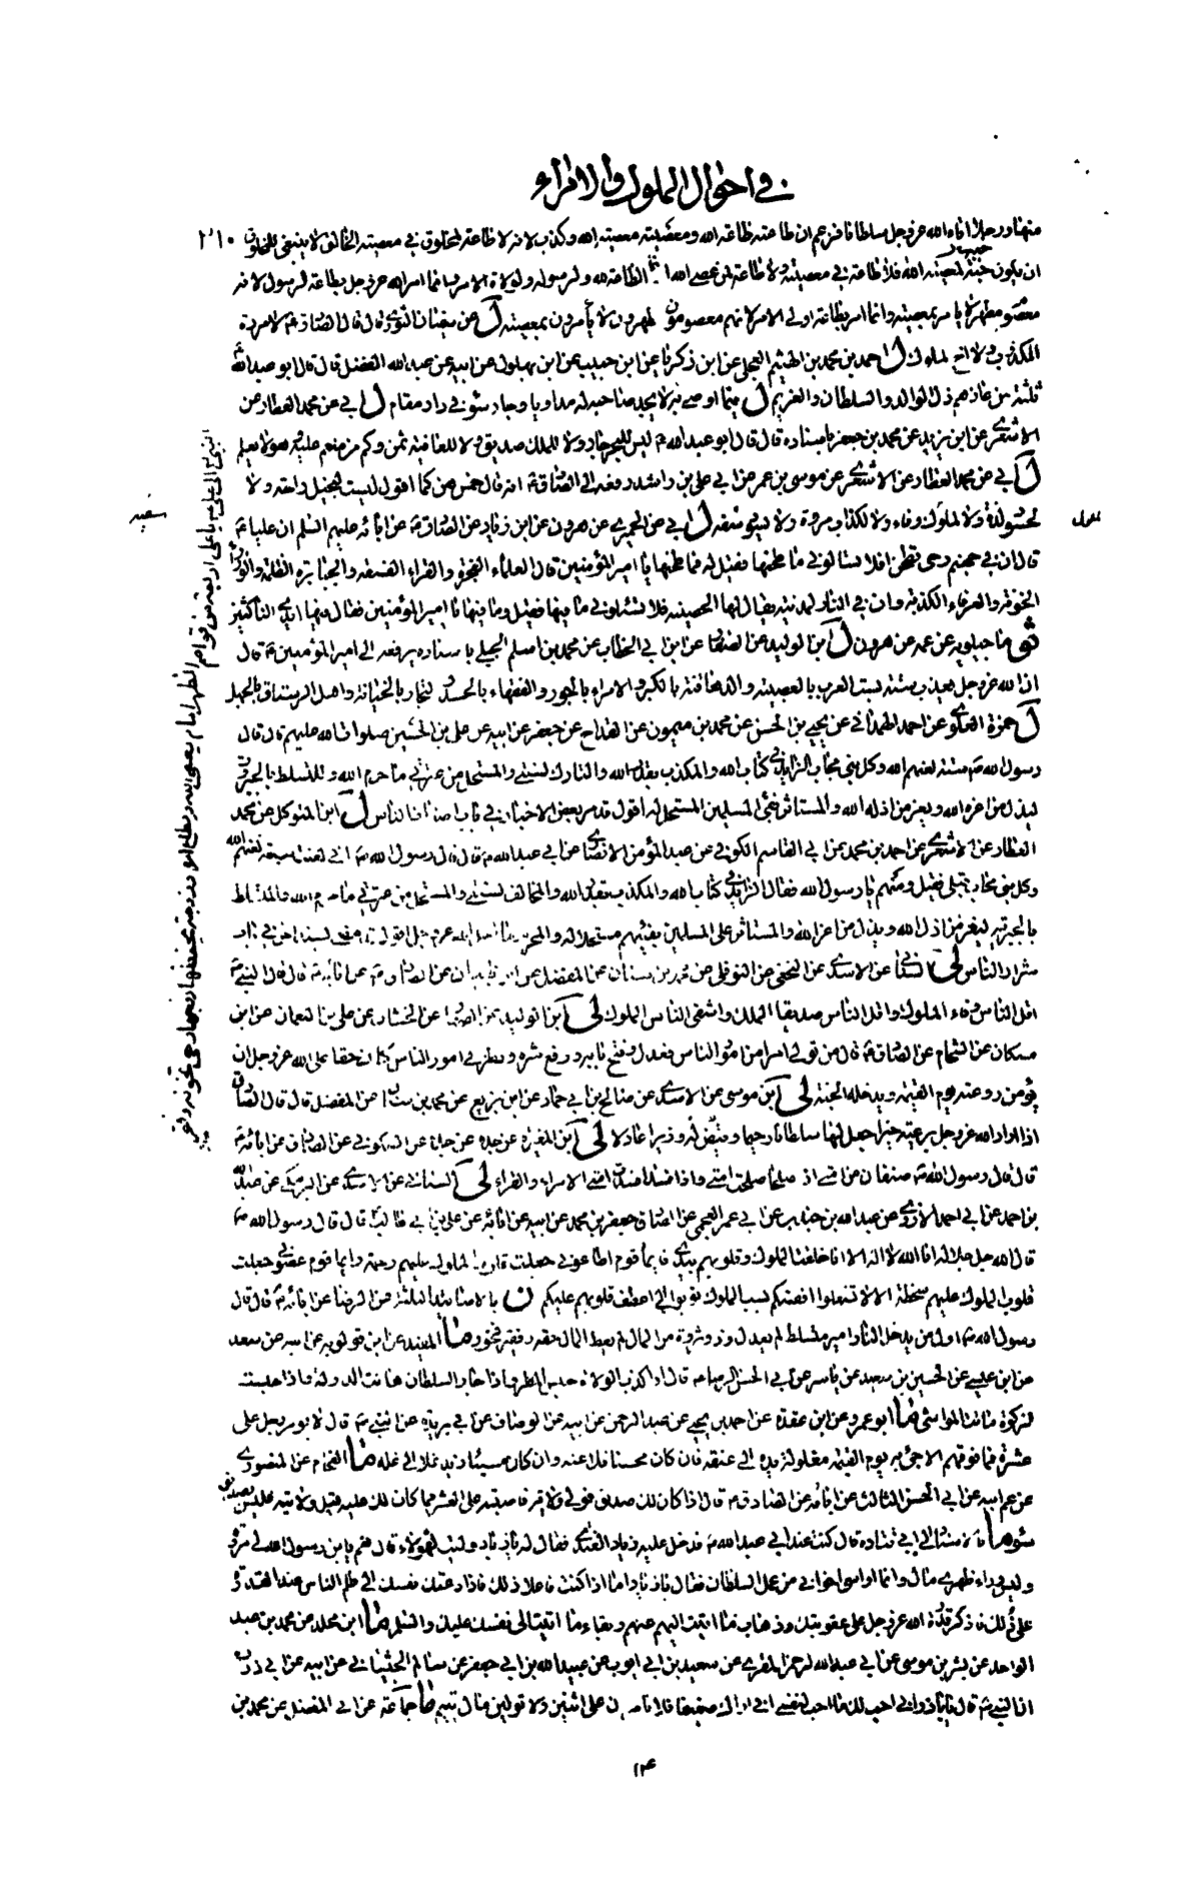 في احوال الملوك والامراء
٢١٠
منها ورجلا اتاه الله عز وجل سلطانا فزعم ان طاعته طاعة الله ومعصيته معصية الله وكذب لانه لا طاعة لمخلوق في معصية الخالق لا ينبغي للمخلوق
ان يكون حبه لمعصية الله فلا طاعة في معصيته ولا طاعة لمن عصى الله انما الطاعة لله ولرسوله ولولاة الامر وانما امر الله عز وجل بطاعة الرسول لانه
معصوم مطهر لا يامر بمعصيته وانما امر بطاعة اولي الامر لانهم معصومون مطهرون لا يأمرون بمعصيته ل عن سفيان الثوري قال قال الصادق لا مروة
لكذوب ولا اخ لملوك ل احمد بن محمد بن الهيثم العجلي عن ابن زكريا عن ابن حبيب عن ابن بهلول عن ابيه عن عبد الله الفضل قال قال ابو عبد الله
ثلثة من عازهم ذل الوالد والسلطان والغريم ل
ل ابي عن محمد العطار عن
الاشعري عن ابن يزيد عن محمد بن جعفر باسناده قال قال ابو عبد الله ليس للبحر جار ولا للملك صديق ولا للعافية ثمن وكم من منعم عليه وهو لا يعلم
ل ابي عن محمد العطار عن الاشعري عن موسى بن عمر عن ابي علي بن راشد رفعه الى الصادق انه قال خمس هن كما اقول ليست لبخيل راحة ولا
لحسود لذة ولا لملوك وفاء ولا لكذاب مروة ولا يسود سفيه ل ابي عن الحميري عن هرون عن ابن زياد عن الصادق عن ابائه عليهم السلم ان عليا
قال ان في جهنم رحى تطحن افلا تسالوني ما طحنها فقيل له فما طحنها يا امير المؤمنين قال العلماء الفجرة والقراء الفسقة والجبابرة الظلمة والوزراء
الخونة والعرفاء الكذبة وان في النار لمدينة يقال لها الحصينة فلا تسئلوني ما فيها فقيل وما فيها يا امير المؤمنين فقال فيها ايدي الناكثين
ثو ماجيلويه عن عمه عن هرون ل ابن الوليد عن الصفار عن ابن ابي الخطاب عن محمد بن اسلم الجبلي باسناده يرفعه الى امير المؤمنين قال
ان الله عز وجل يعذب ستة بست العرب بالعصبية والدهاقنة بالكبر والامراء بالجور والفقهاء بالحسد والتجار بالخيانة واهل الرستاق بالجهل
ل حمزة العلوي عن احمد الهمداني عن يحيى بن الحسن عن محمد بن ميمون عن القداح عن جعفر عن ابيه عن علي بن الحسين صلوات الله عليهم قال قال
رسول الله ستة لعنهم الله وكل نبي مجاب الزايد في كتاب الله والمكذب بقدر الله والتارك لسنتي والمستحل من عترتي ما حرم الله والمتسلط بالجبروت
ليذل من اعزه الله ويعز من اذله الله والمستاثر بفئ المسلمين المستحل له اقول قد مر بعض الاخبار في باب اصناف الناس ل ابن المتوكل عن محمد
العطار عن الاشعري عن احمد بن محمد عن ابي القاسم الكوفي عن عبد المؤمن الانصاري عن ابي عبد الله قال قال رسول الله اني لعنت سبعة لعنهم الله
وكل نبي مجاب قبلي فقيل ومن هم يا رسول الله فقال الزايد في كتاب الله والمكذب بقدر الله والمخالف لسنتي والمستحل من عترتي ما حرم الله والمتسلط
بالجبرية ليعز من اذل الله ويذل من اعز الله والمستاثر على المسلمين بفيئهم مستحلا له والمحرم ما احل الله عز وجل اقول قد مضى بسند اخر في باب
شرار الناس لى
عن الاسدي عن النخعي عن النوفلي عن محمد بن سنان عن المفضل
عن ابائه قال قال النبي
اقل الناس وفاء الملوك واقل الناس صديقا الملك واشقى الناس الملوك لى ابن الوليد عن الصفار عن الخشاب عن علي بن النعمان عن ابن
مسكان عن الشحام عن الصادق قال من تولى امرا من امور الناس فعدل وفتح بابه ورفع شره ونظر في امور الناس كان حقا على الله عز وجل ان
يؤمن روعته يوم القيمة ويدخله الجنة لى ابن موسى عن الاسدي عن صالح بن ابي حماد عن ابن بزيع عن محمد بن سنان عن المفضل قال قال الصادق
اذا اراد الله عز وجل برعية خيرا جعل لها سلطانا رحيما وقيض له وزيرا عادلا لى ابن المغيرة عن جده عن جده عن السكوني عن الصادق عن ابائه
قال قال رسول الله صنفان من امتي اذا صلحا صلحت امتي واذا فسدا فسدت امتي الامراء والقراء لى السناني عن الاسدي عن البرمكي عن عبد الله
بن احمد عن ابي احمد الازدي عن عبد الله بن جندب عن ابي عمر العجمي عن الصادق جعفر بن محمد عن ابيه عن ابائه عن علي بن ابي طالب قال قال رسول الله
قال الله جل جلاله انا الله لا اله الا انا خلقت الملوك وقلوبهم بيدي فايما قوم اطاعوني جعلت قلوب الملوك عليهم رحمة وايما قوم عصوني جعلت
قلوب الملوك عليهم سخطة الا لا تشغلوا انفسكم بسب الملوك توبوا الي اعطف قلوبهم عليكم ن بالاسانيد الثلثة عن الرضا عن ابائه قال قال
رسول الله اول من يدخل النار امير متسلط لم يعدل وذو ثروة من المال لم يعط المال حقه وفقير فخور ما المفيد عن ابن قولويه عن ابيه عن سعد
عن ابن عيسى عن الحسين بن سعيد عن ياسر عن ابي الحسن الرضا قال اذا كذب الولاة حبس المطر واذا جار السلطان هانت الدولة واذا حبست
الزكوة ماتت المواشي ما ابو عمرو عن ابن عقدة عن احمد بن يحيى عن عبد الرحمن عن ابيه عن الوصافي عن ابي بريدة عن النبي قال لا يؤمر رجل على
عشرة فما فوقهم الا جئ به يوم القيمة مغلولة يده الى عنقه فان كان محسنا فك عنه وان كان مسيئا زيد غلا الى غله ما الفحام عن المنصوري
عن عم ابيه عن ابي الحسن الثالث عن ابائه عن الصادق قال اذا كان لك صديق فولي ولاية فاصبته على العشر مما كان لك عليه قبل ولايته فليس بصديق
سوء ما
ابي قتادة قال كنت عند ابي عبد الله فدخل عليه زياد القندي فقال له يا زياد وليت لهؤلاء قال نعم يا بن رسول الله لي مروة
وليس وراء ظهري مال وانما اواسي اخواني من عمل السلطان فقال يا زياد اما اذا كنت فاعلا ذلك فاذا دعتك نفسك الى ظلم الناس عند القدرة
على ذلك فاذكر قدرة الله عز وجل على عقوبتك وذهاب ما اتيت اليهم عنهم وبقاء ما اتيت الى نفسك عليك والسلم ما ابن مخلد عن محمد بن عبد
الواحد عن بشر بن موسى عن ابي عبد الرحمن المقري عن سعيد بن ابي ايوب عن عبيد الله بن ابي جعفر عن سالم الجيشاني عن ابيه عن ابي ذر
ان النبي قال يا باذر اني احب لك ما احب لنفسي اني اراك ضعيفا فلا تامرن على اثنين ولا تولين مال يتيم ما جماعة عن ابي المفضل عن محمد بن
النبي
يا علي اربعة من قواصم الظهر امام يعصي الله ويطاع امره وزوجة يحفظها زوجها وهي تخونه
١٣